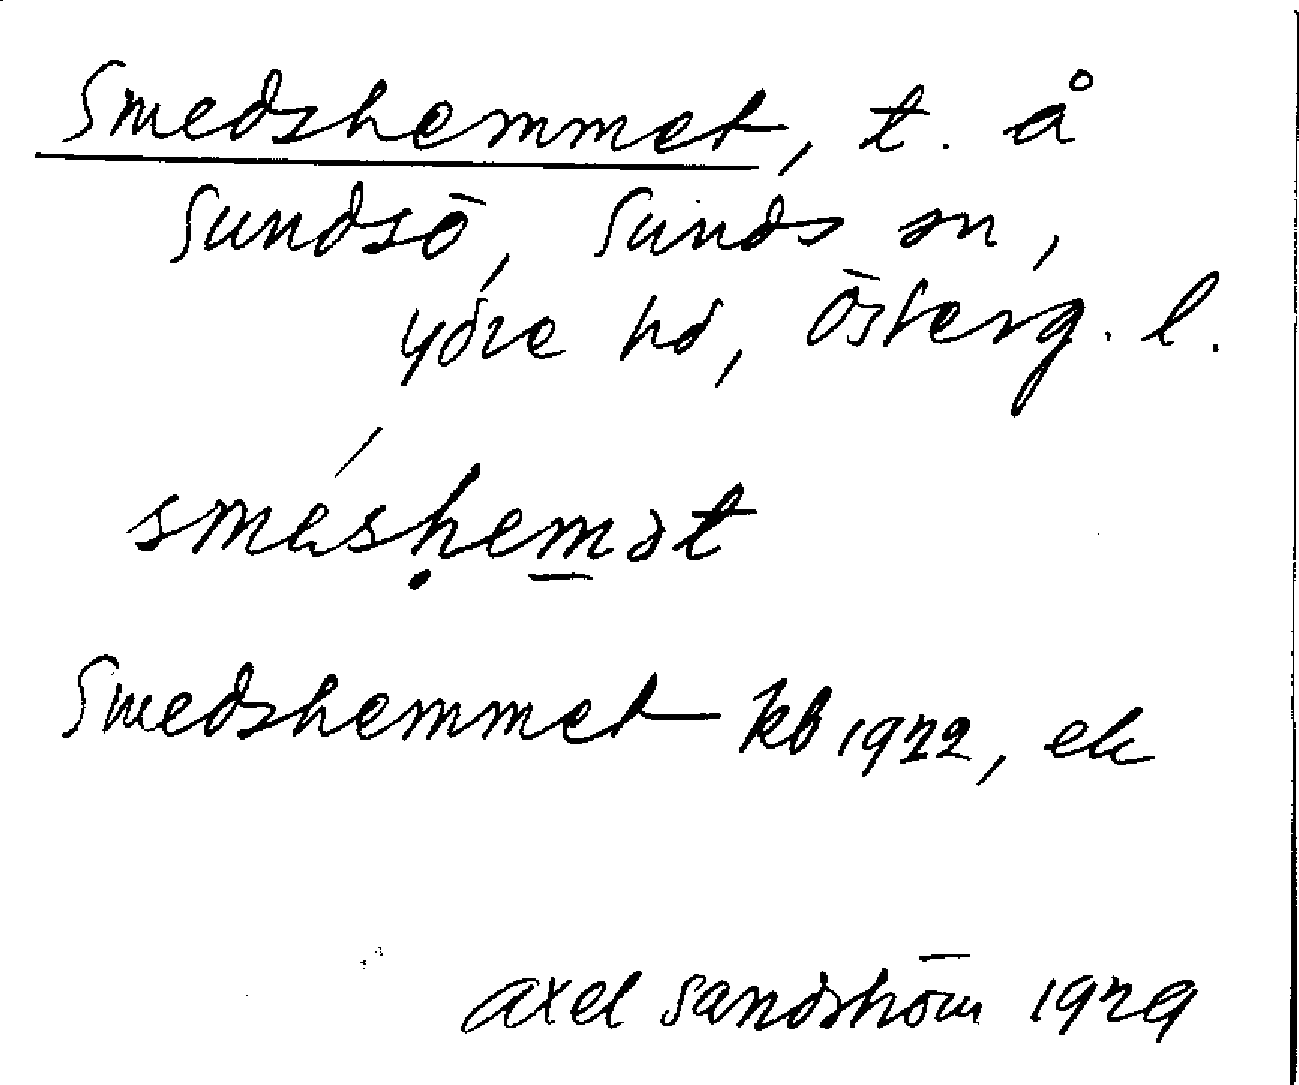 Smedshemmet, t. å
Sundsö, Sunds sn,
Ydre hd, Österg. l.
smeshemət
Smedshemmet kb 1922, ek
Axel Sandström 1929